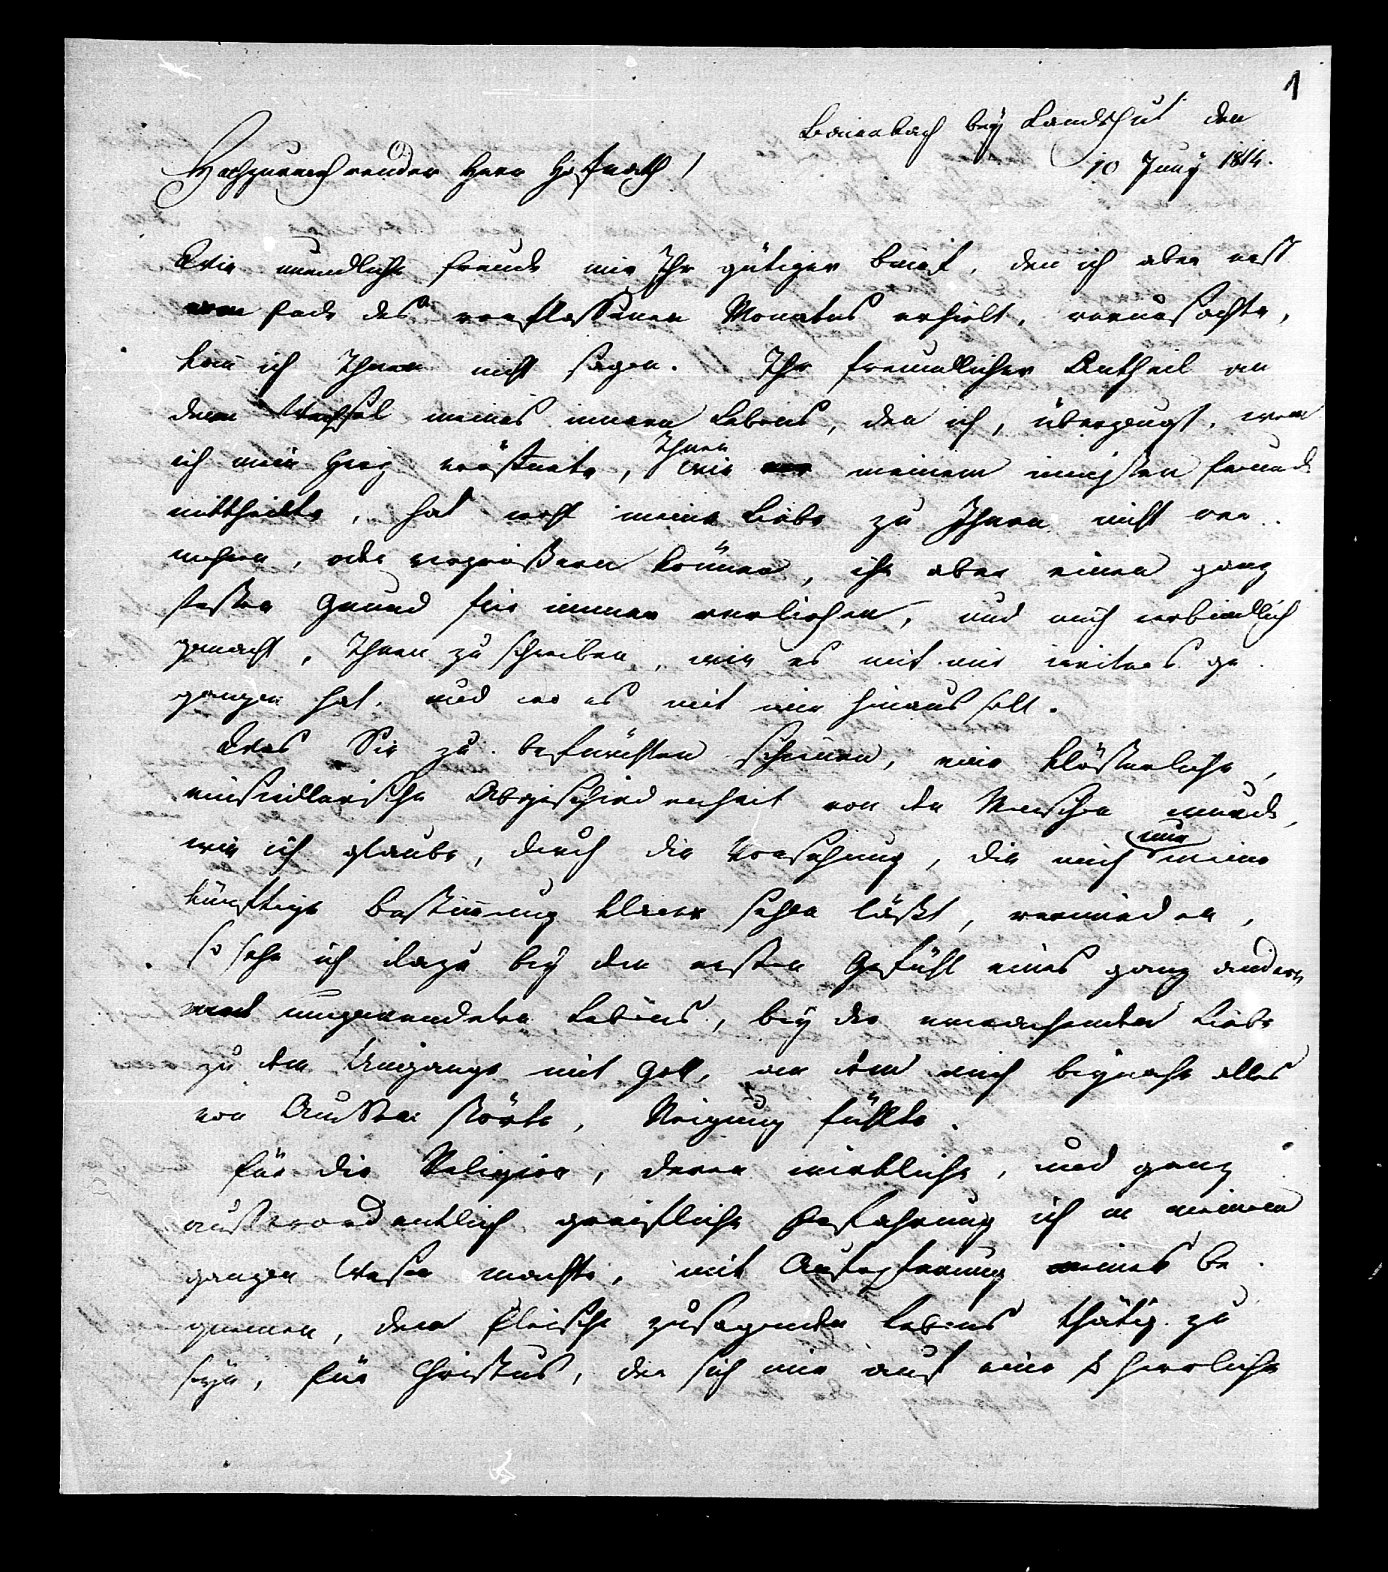 1
Baierbach bey Landshut den
10 Juny 1814.
Hochzuverehrender Herr Hofrath!
Wie unendliche Freude mir Ihr gütiger Brief, den ich aber erst
Ende des verflossenen Monates erhielt, verursachte,
kan ich Ihnen nicht sagen. Ihr freundlicher Antheil an
dem Wechsel meines innern Lebens, den ich, überzeugt, wem
ich mein Herz eröffnete, Ihnen wie meinem innigsten Freunde
mittheilte, hat wohl meine Liebe zu Ihnen nicht ver-
mehren, oder vergrößern können, ihr aber einen ganz
festen Grund für immer verliehen, und mich verbindlich
gemacht, Ihnen zu schreiben, wie es mit mir weiters ge-
gangen hat, und wo es mit mir hinaus soll.
Was Sie zu befürchten scheinen, eine klösterliche,
einsiedlerische Abgeschiedenheit von den Menschen wurde,
wie ich glaube, durch die Vorsehung, die mich nun meine
künftige Bestimung klarer sehen läßt, vermieden,
so sehr ich dazu bey dem ersten Gefühl eines ganz andern
umgewendeten Lebens, bey der erwachenden Liebe
zu dem Umgange mit Gott, an dem mich beynahe alles
von Außen störte, Neigung fühlte.
Für die Religion, deren wirkliche, und ganz
außerordentlich geistliche Erfahrung ich in meinem
ganzen Wesen machte, mit Aufopferung meines be-
quemen, dem Fleische zusagenden Lebens thätig zu
seyn, für Christus, der sich mir auf eine so herrliche